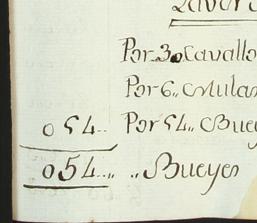 Por 30 Cavallo
Por 6,, Mulas
054.. Por 54,, Buey
054.. ,, Bueyes